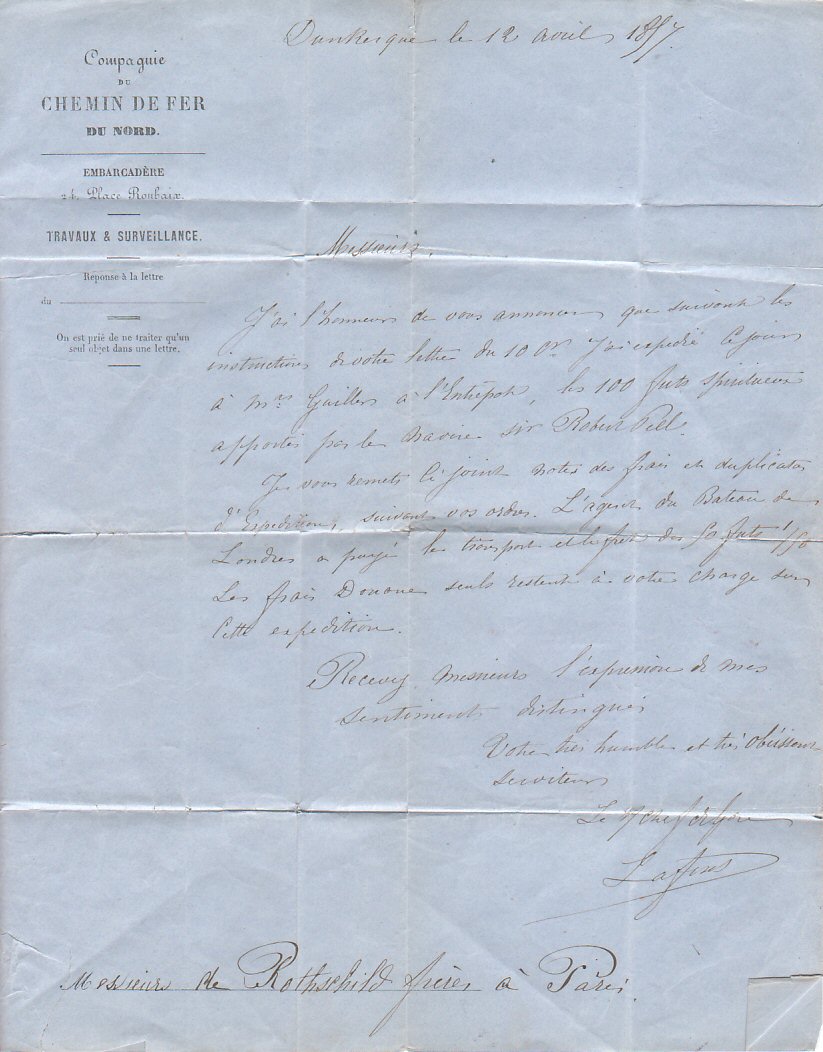 Dunkerque le 12 avril 1857.
Compagnie
DU
CHEMIN DE FER
DU NORD.
EMBARCADÈRE
24, Place Roubaix.
TRAVAUX & SURVEILLANCE.
Réponse à la lettre
du
On est prié de ne traiter qu'un
seul objet dans une lettre.
Messieurs,
J'ai l'honneur de vous annoncer que suivant les
instructions de votre lettre du 10 Ct J'ai expedié Ce jour
à Mrs Guillers à l'Entrepot, les 100 futs spiritueux
apportés par le navire Sir Robert Peel.
Je vous remets Ci joint note des frais et duplicatas
d'Expeditions, suivant vos ordres. L'agent du Bateau de
Londres a payé le transport et le fret des 50 futs 1/50
Les frais Douane seuls restent à votre charge sur
Cette expedition.
Recevez Messieurs l'expression de mes
sentiments distingués
Votre très humble et très Obéissant
serviteur
Le
Messieurs de Rothschild frères à Paris.